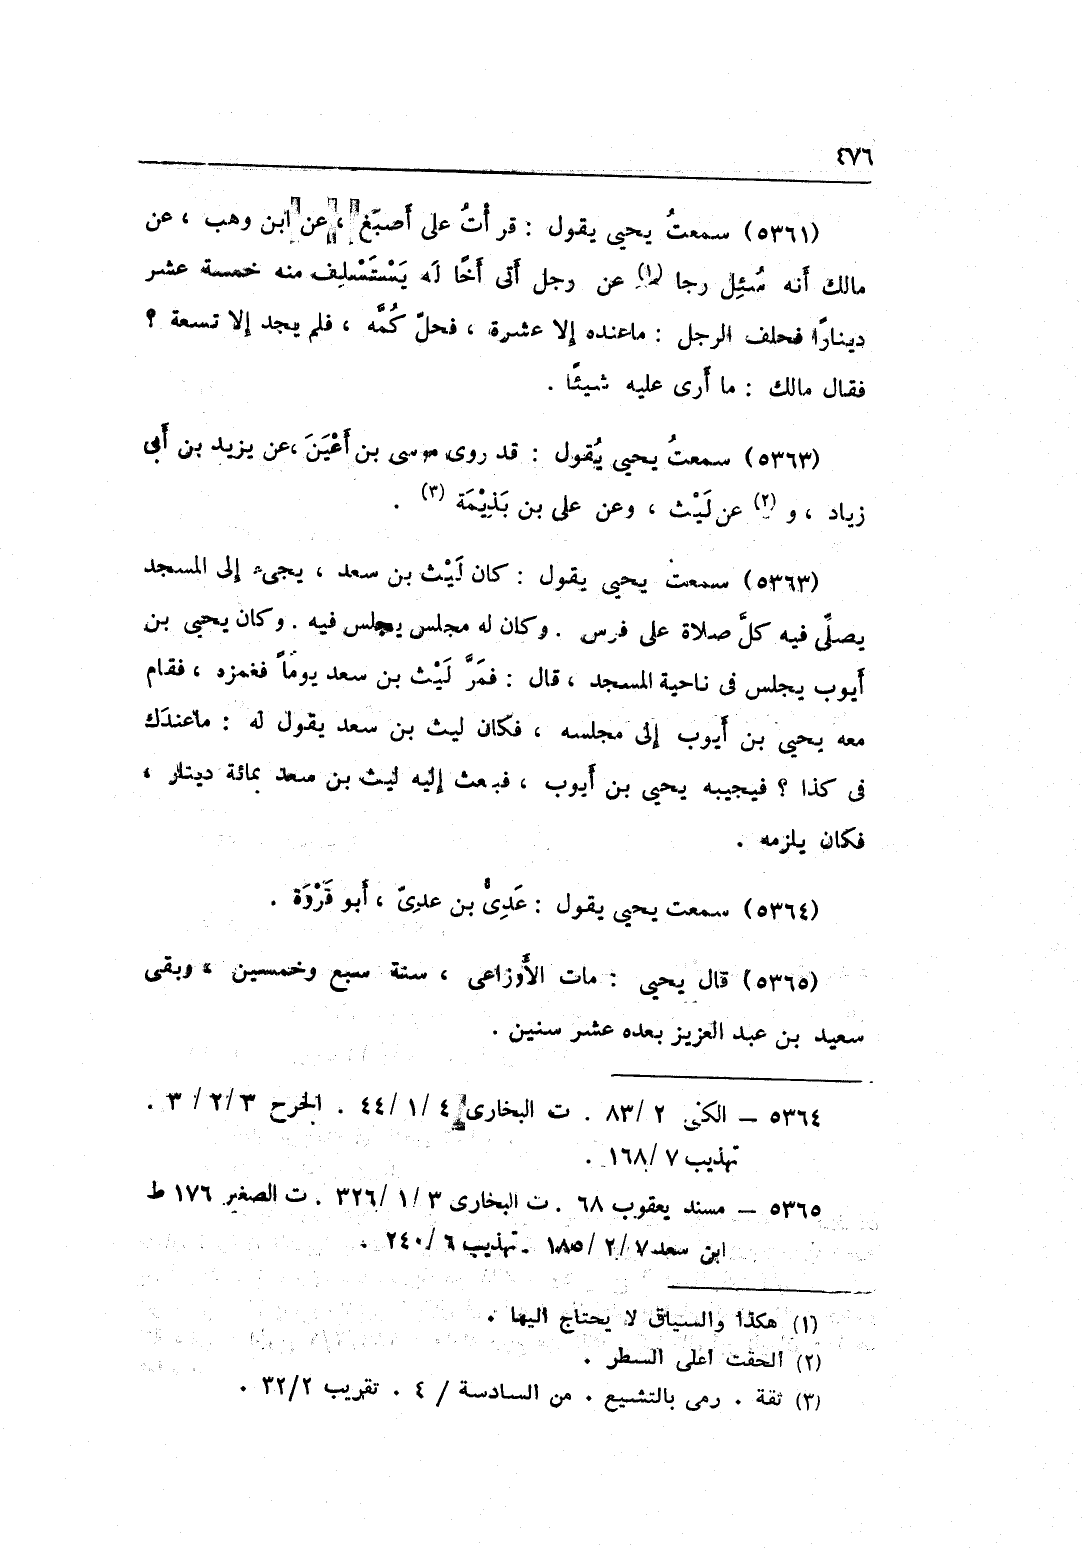 ٤٧٦
(٥٣٦١) سمعتُ يحيى يقول : قر أْتُ على أَصبَّغ ، عن ابن وهب ، عن
مالك أَنه سُئِل رجا (١) عن رجل أَتى أَخًا لَه يَسْتَسْلِف منه خمسة عشر
دينارًا فحلف الرجل : ماعنده إلا عشرة ، فحلّ كُمَّه ، فلم يجد إلا تسعة ؟
فقال مالك : ما أَرى عليه شيئًا .
(٥٣٦٣) سمعتُ يحيى يُقول : قد روى موسى بن أَعْيَنَ ،عن يزيد بن أَبى
زياد ، و (٢) عن لَيْث ، وعن على بن بَذِيْمَة (٣) .
(٥٣٦٣) سمعت يحيى يقول : كان لَيْث بن سعد ، يجىء إلى المسجد
يصلِّى فيه كلَّ صلاة على فرس . وكان له مجلس يجلس فيه . وكان يحيى بن
أَيوب يجلس فى ناحية المسجد ، قال : فمَرَّ لَيْث بن سعد يوماً فغمزه ، فقام
معه يحيى بن أَيوب إلى مجلسه ، فكان ليث بن سعد يقول له : ماعندَك
فى كذا ؟ فيجيبه يحيى بن أَيوب ، فبعث إليه ليث بن سعد بمائة دينار ،
فكان يلزمه .
(٥٣٦٤) سمعت يحيى يقول : عَدِىُّ بن عدىّ ، أَبو فَرْوَة .
(٥٣٦٥) قال يحيى : مات الأَوزاعى ، سنة سبع وخمسين ، وبقى
سعيد بن عبد العزيز بعده عشر سنين .
٥٣٦٤ – الكنى ٢ /٨٣ . ت البخارى ٤ /١ /٤٤ . الجرح ٣ /٢ / ٣ .
تهذيب ٧ /١٦٨ .
٥٣٦٥ – مسند يعقوب ٦٨ . ت البخارى ٣ /١ /٣٢٦ . ت الصغير ١٧٦ ط
ابن سعد ٧ /٢ /١٨٥ . تهذيب ٦ /٢٤٠ .
(١) هكذا والسياق لا يحتاج اليها .
(٢) الحقت اعلى السطر .
(٣) ثقة . رمى بالتشيع . من السادسة / ٤ . تقريب ٣٢/٢ .